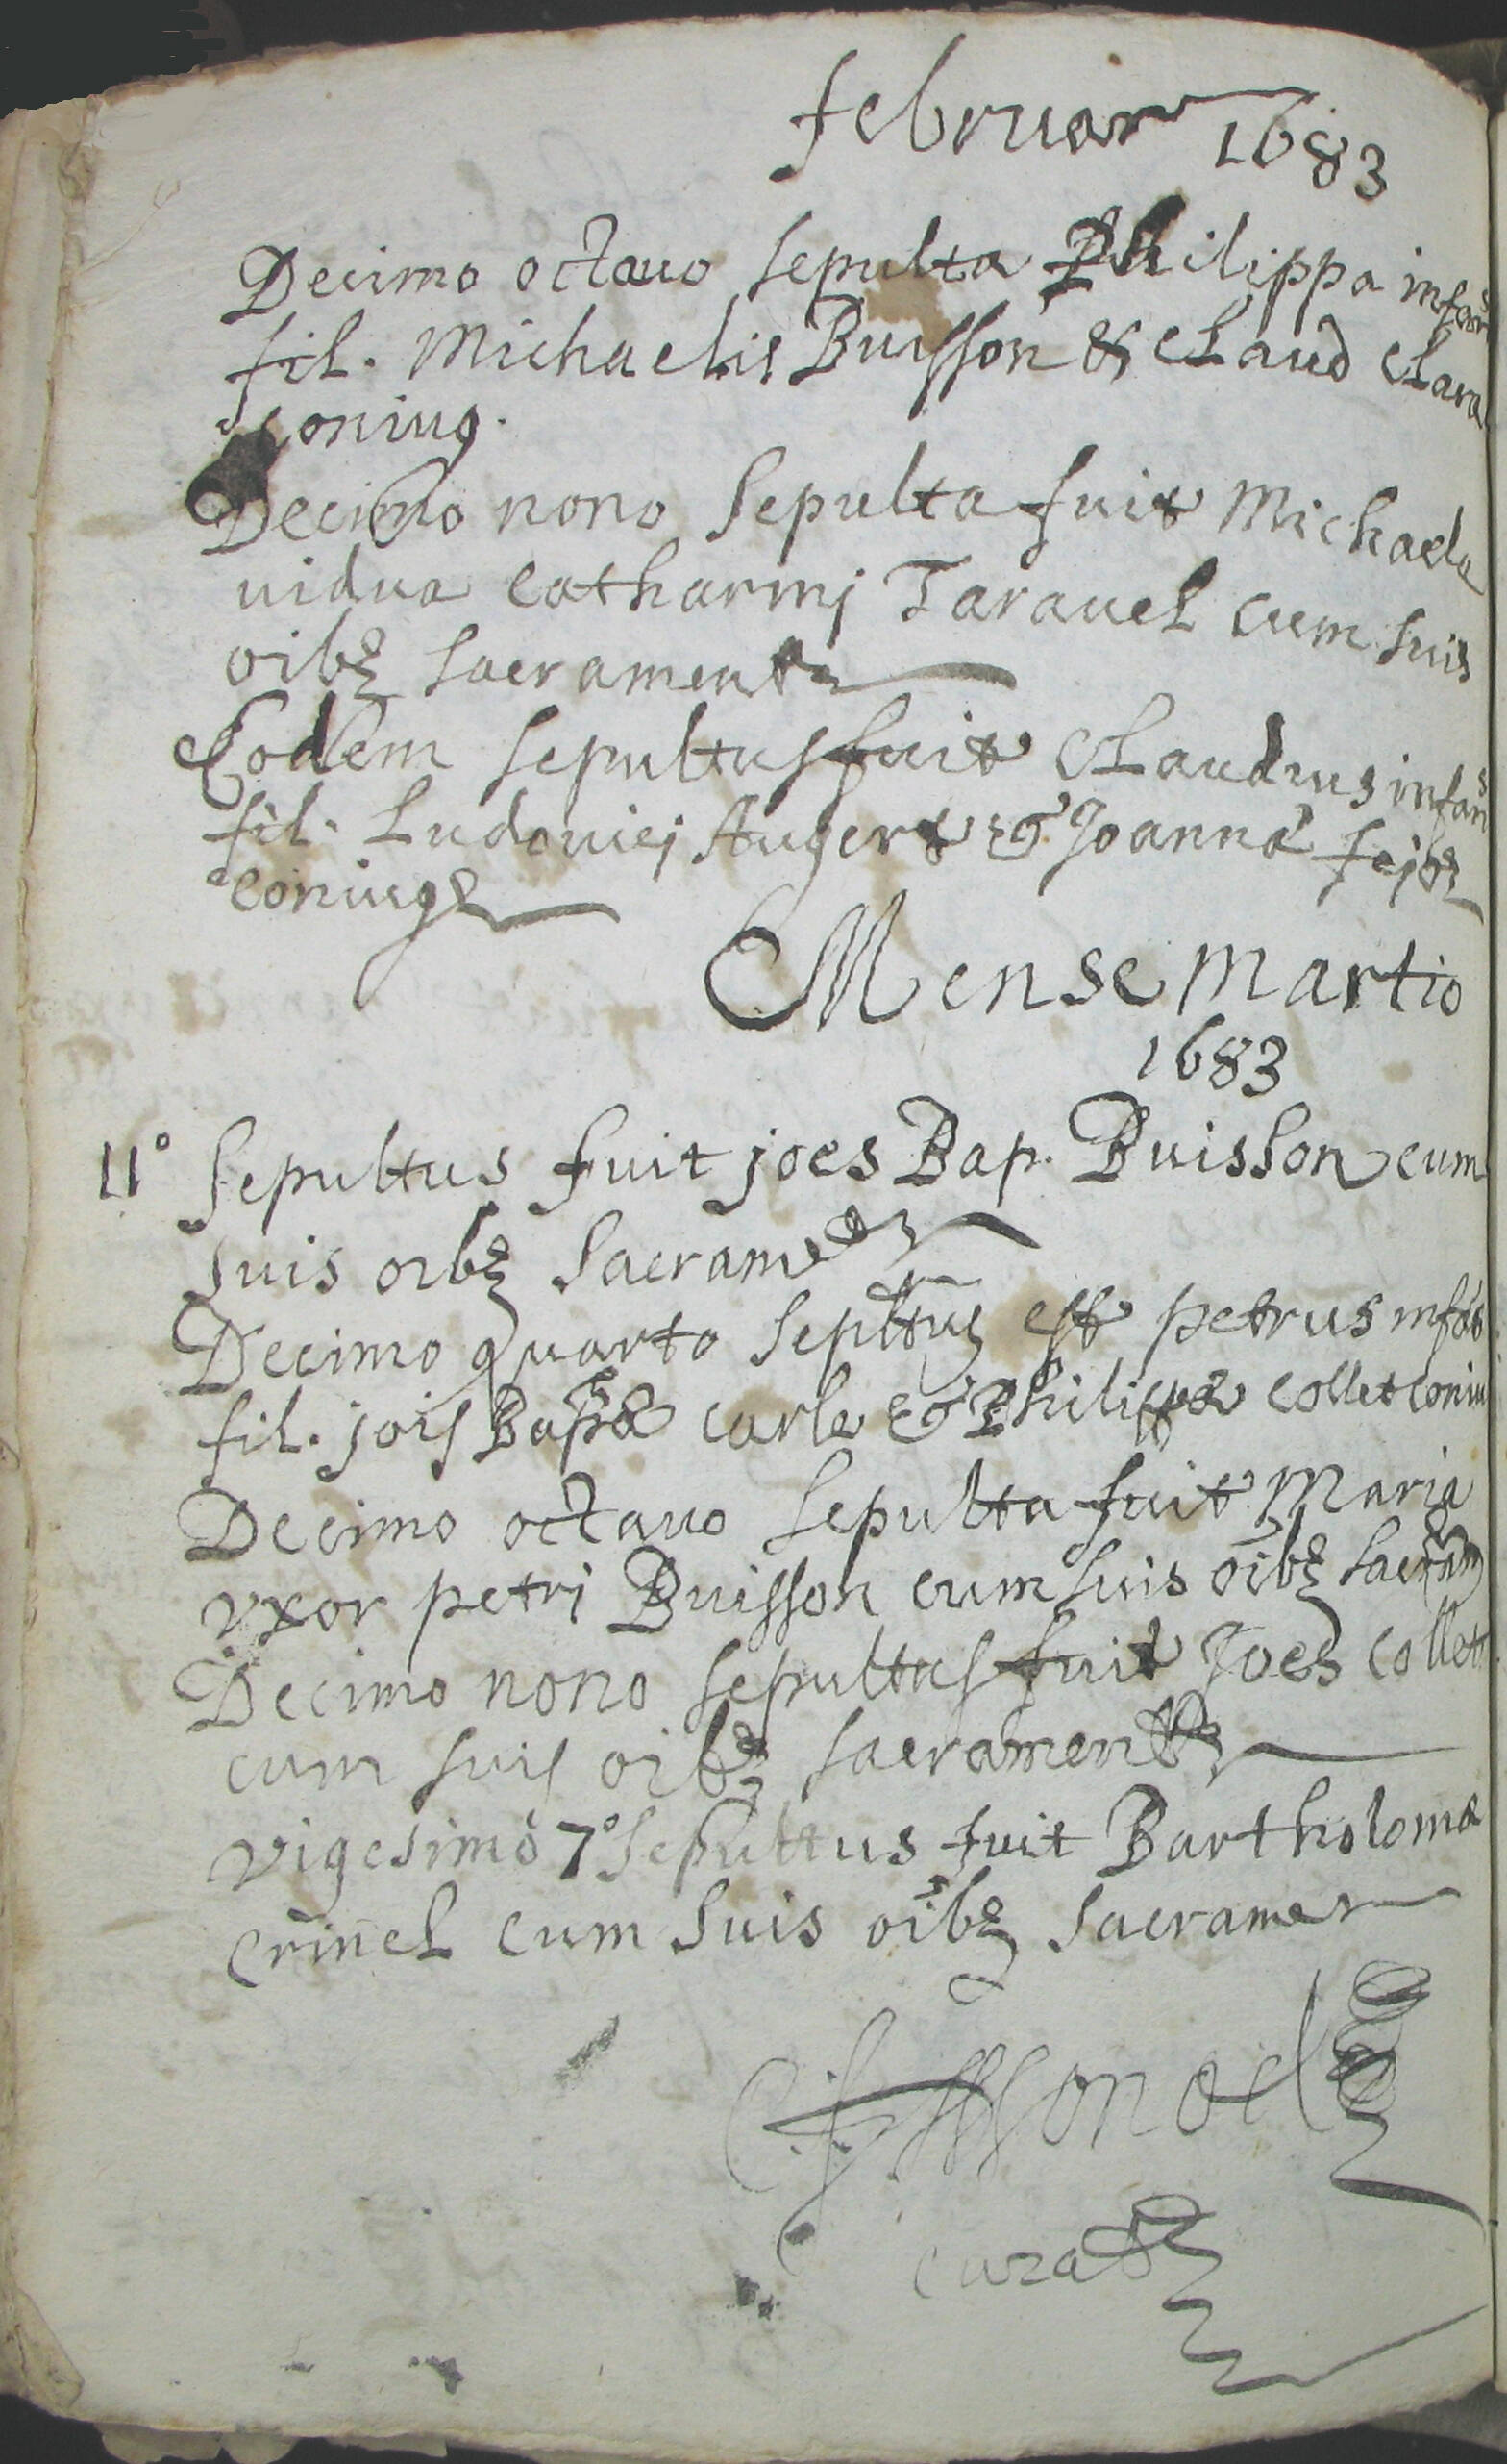 februar 1683
Decimo octauo sepulta Philippa infans
fil. Michaelis Buisson & Claud Clara
coniug.
Decimo nono Sepulta fuit Michaela
uidua Catharinj Tarauel cum suis
oibz sacrament
Eodem sepultus fuit Claudius infans
fil. Ludouicj Augert & Joannæ
coniug
Mense Martio
1683
11° sepultus fuit joes Bap. Buisson cum
suis oibz Sacrame
Decimo quarto sepultus est petrus infas
fil. jois Baptæ carle & Philippæ collet coniu
Decimo octauo Sepulta fuit Maria
vxor petrj Buisson cum suis oibz sacram
Decimo nono sepultus fuit Joes Collet
cum suis oibz sacrament
vigesimo 7° Sepultus fuit Bartholomæ
crinel cum suis oibz sacrame
curat